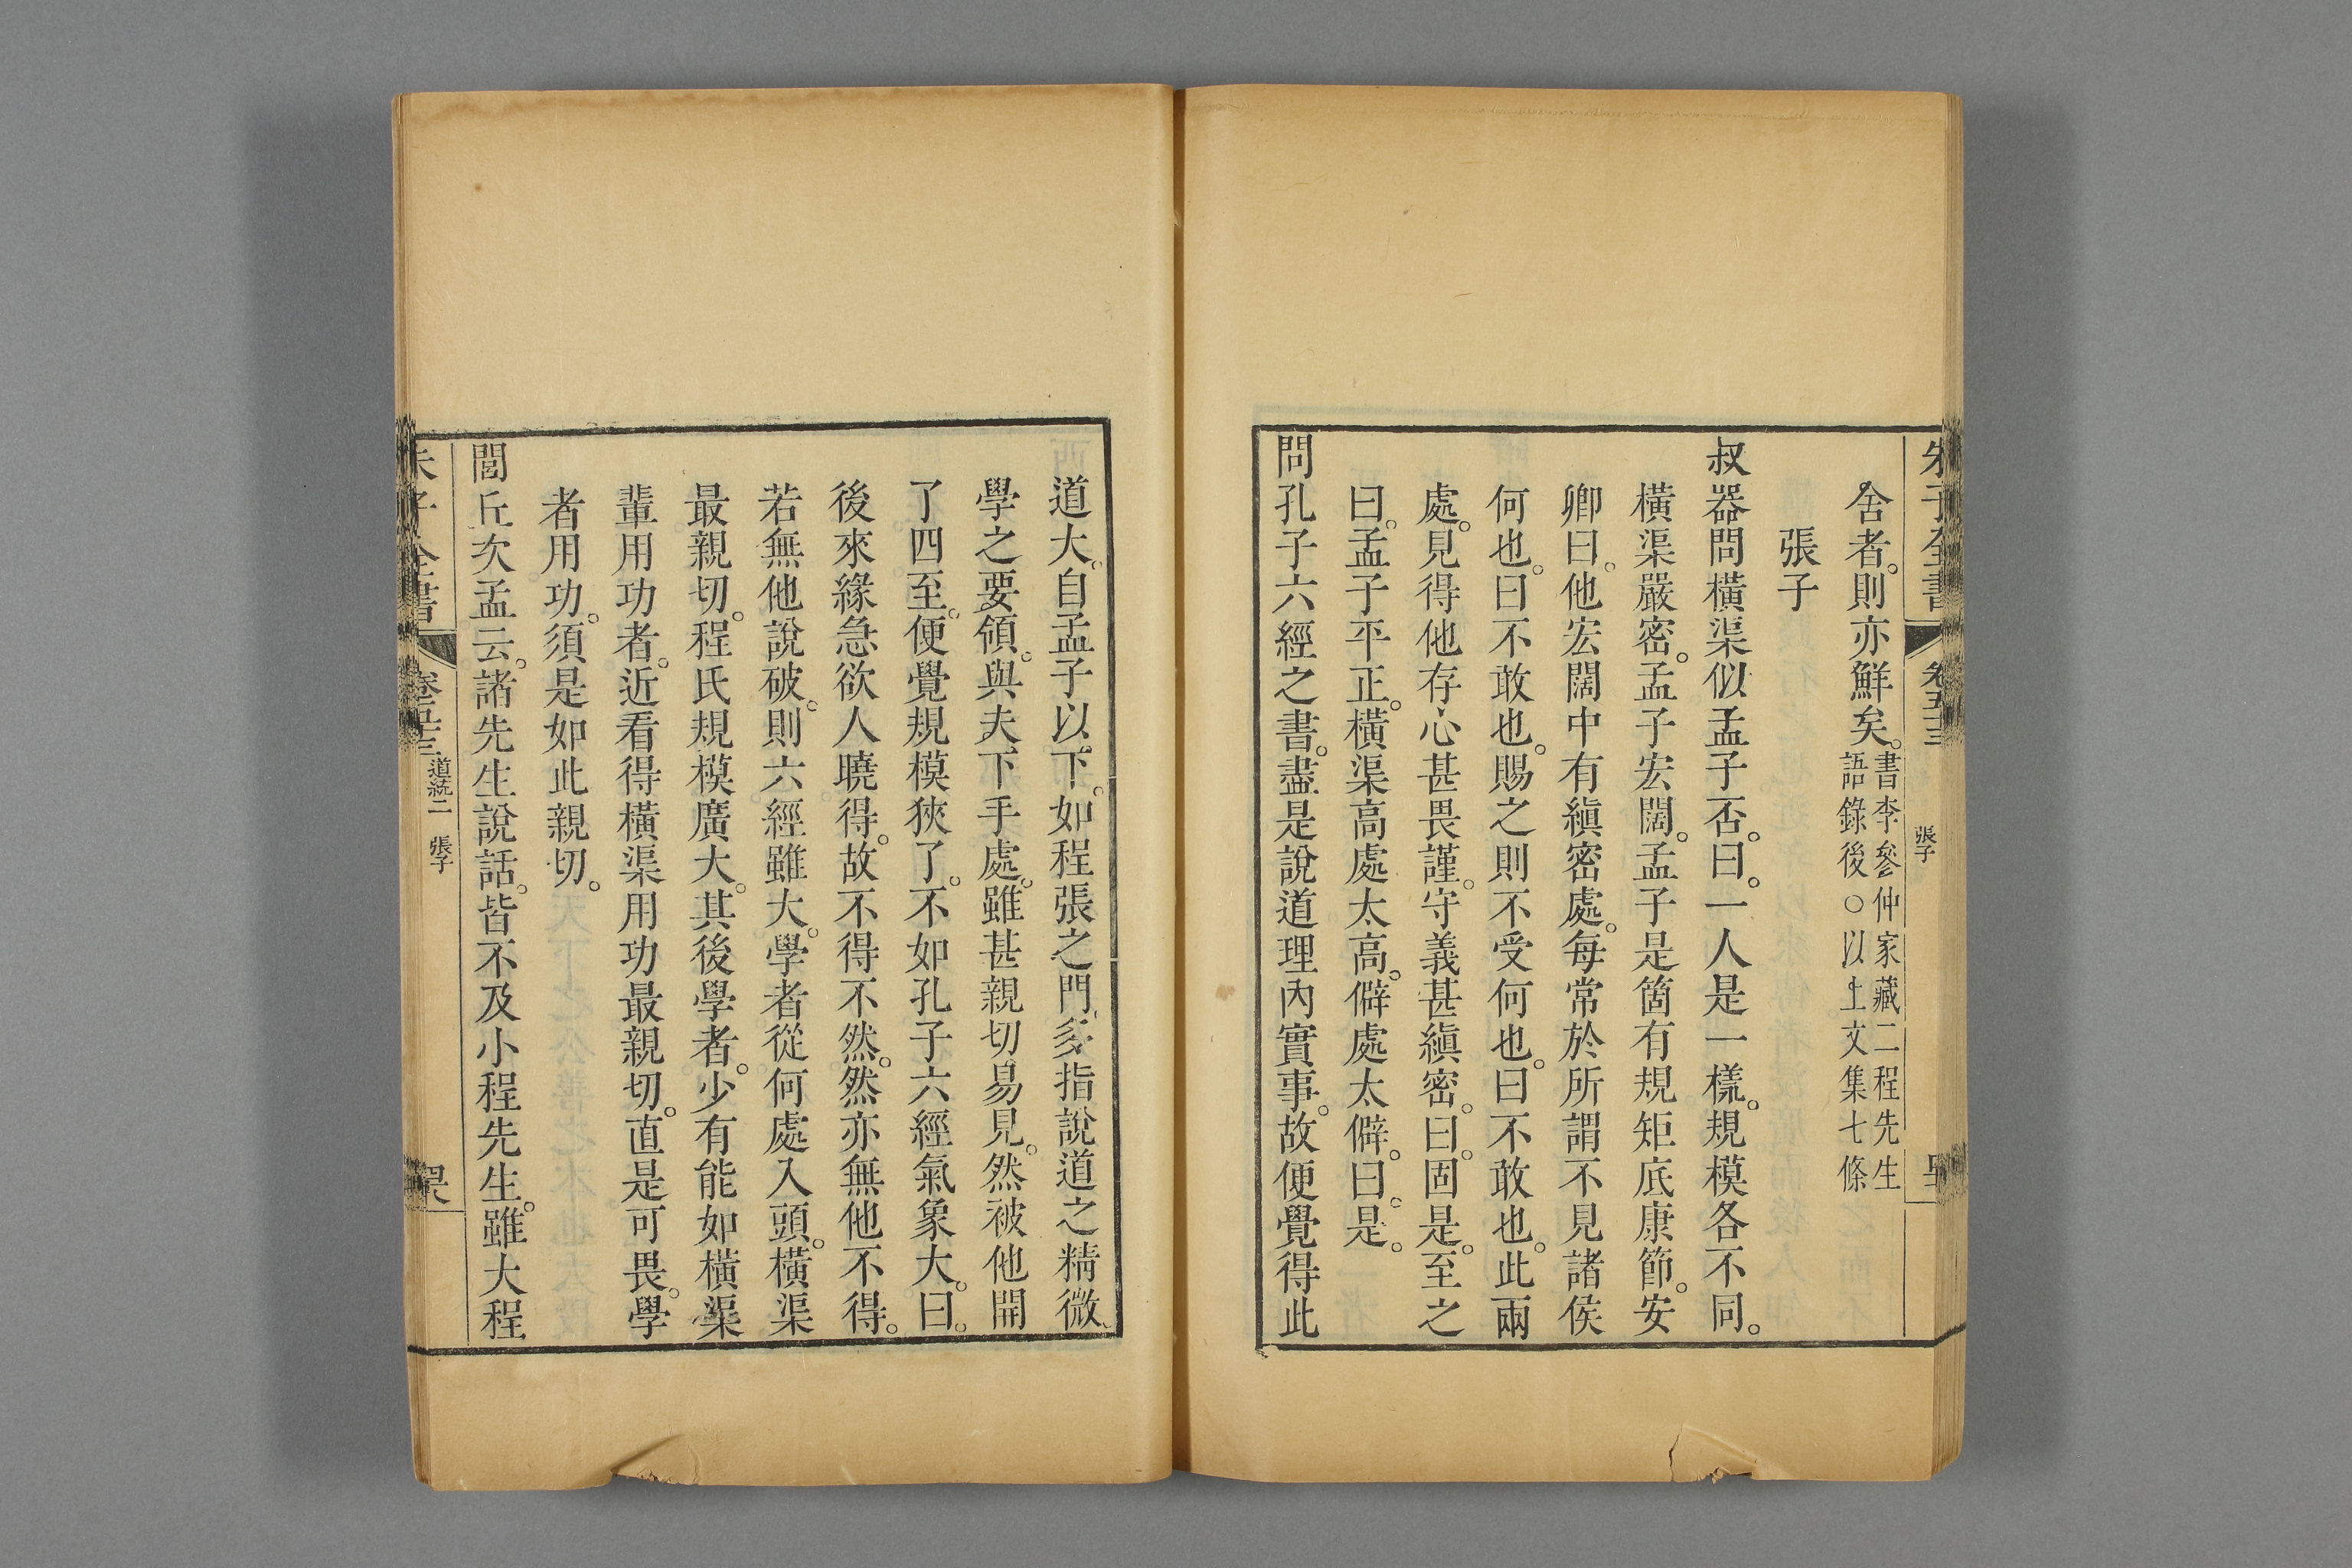 朱子全書 卷五十三 張子
舍者。則亦鮮矣。書李參仲家藏二程先生語錄後○以上文集七條
張子
叔器問橫渠似孟子否。曰。一人是一樣。規模各不同。
橫渠嚴密。孟子宏闊。孟子是箇有規矩底康節。安
卿曰。他宏闊中有縝密處。每常於所謂不見諸侯
何也。曰不敢也。賜之則不受何也。曰不敢也。此兩
處。見得他存心甚畏謹。守義甚縝密。曰。固是。至之
曰。孟子平正。橫渠高處太高。僻處太僻。曰。是。
問孔子六經之書。盡是說道理內實事。故便覺得此
道大。自孟子以下。如程張之門。多指說道之精微。
學之要領。與夫下手處。雖甚親切。易見。然被他開
了四至。便覺規模狹了。不如孔子六經氣象大。曰。
後來緣急欲人曉得。故不得不然。然亦無他不得。
若無他說破。則六經雖大。學者從何處入頭。橫渠
最親切。程氏規模廣大。其後學者。少有能如橫渠
輩用功者。近看得橫渠用功最親切。直是可畏。學
者用功。須是如此親切。
閭丘次孟云。諸先生說話。皆不及小程先生。雖大程
朱子全書 卷五十三 道統二 張子